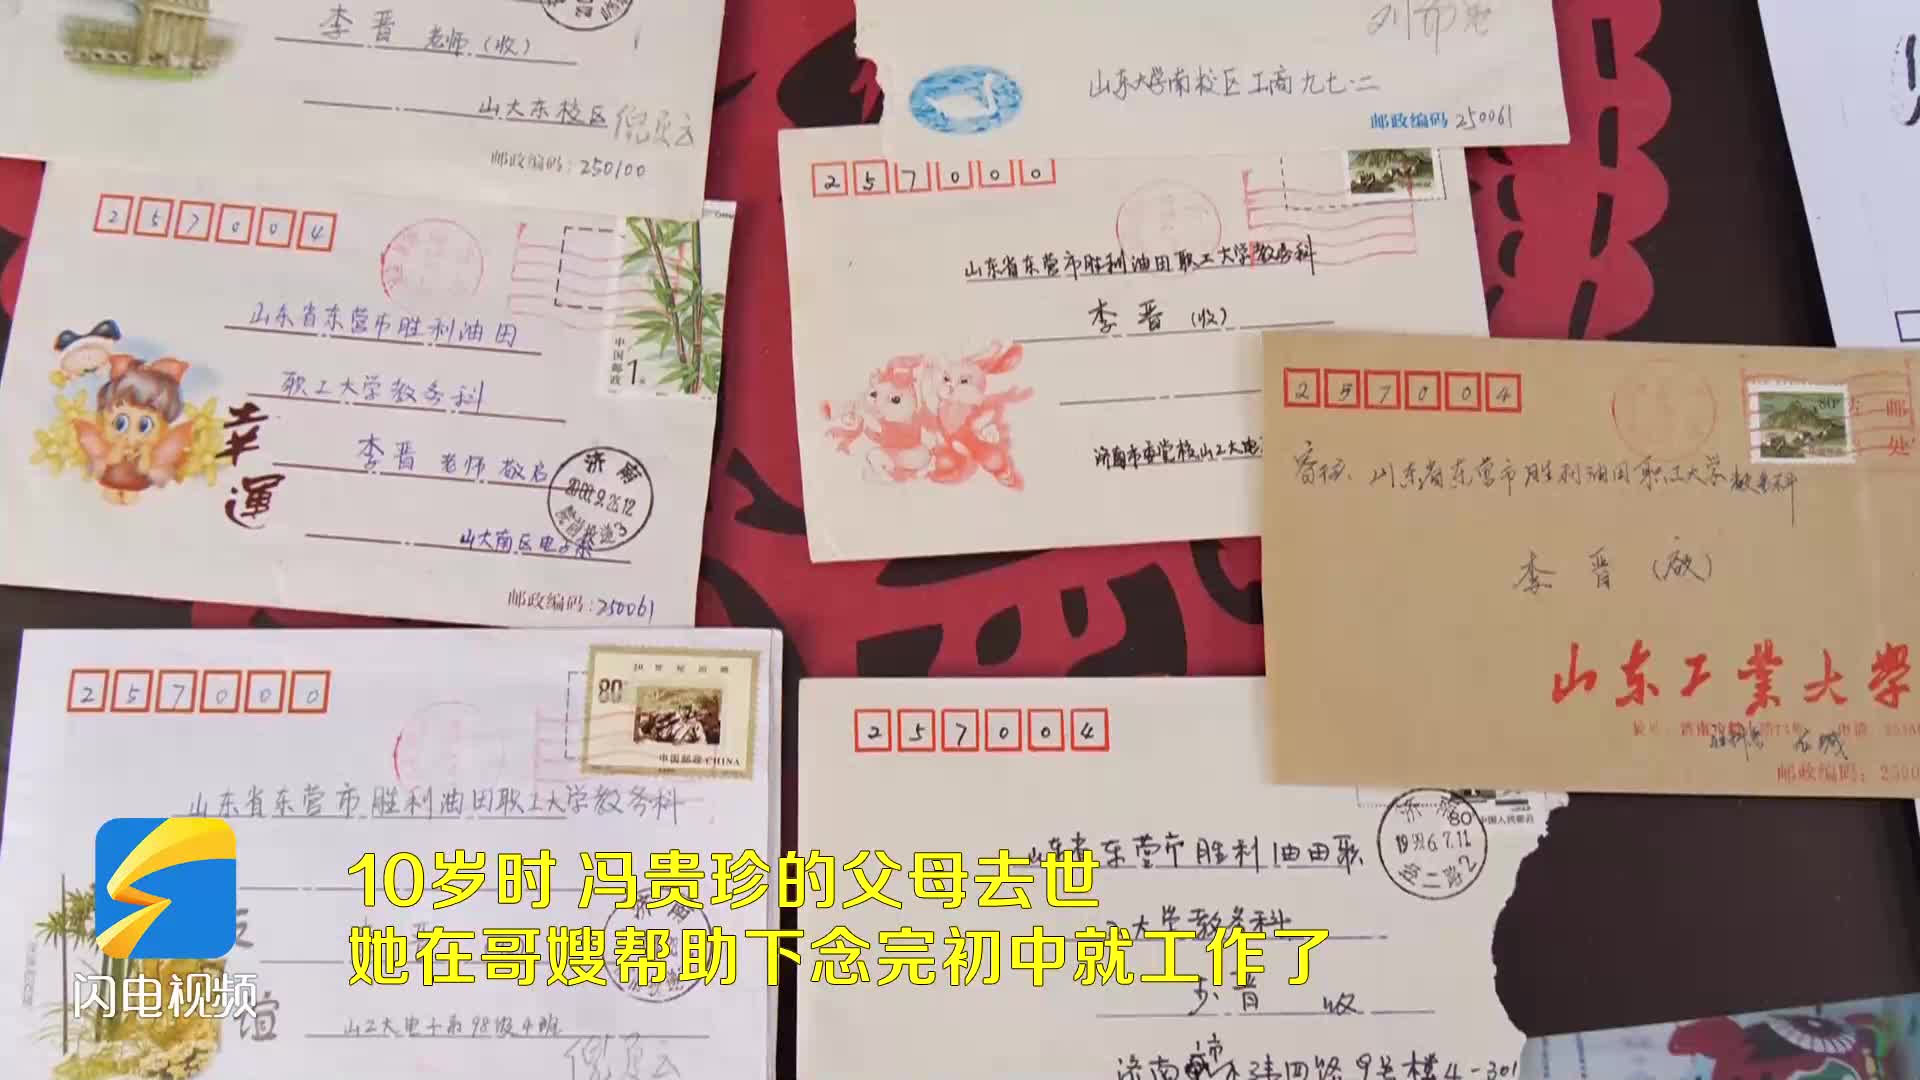 李晋 老师(收)
山大东校区
邮政编码: 250100
山东大学南校区工商九七·二
邮政编码 250061
257004
山东省东营市胜利油田
职工大学教务科
李晋 老师 敬启
中国邮政
1元
幸運
济南
山大南区电
邮政编码: 250061
257000
山东省东营市胜利油田职工大学教务科
李晋 (收)
济南市委党校山工大电
257004
80
山东省东营市胜利油田职工大学教务科
李晋 (启)
山东工業大学
邮政编码:
257000
80
中国邮政 CHINA
山东省东营市胜利油田职工大学教务科
济南
谊
山工大电子系98级4班
257004
80
中国人民邮政
济南
1999.6.7.11
东营市胜利油田职
工大学教务科
李晋 收
9号楼4-301
10岁时 冯贵珍的父母去世
她在哥嫂帮助下念完初中就工作了
闪电视频